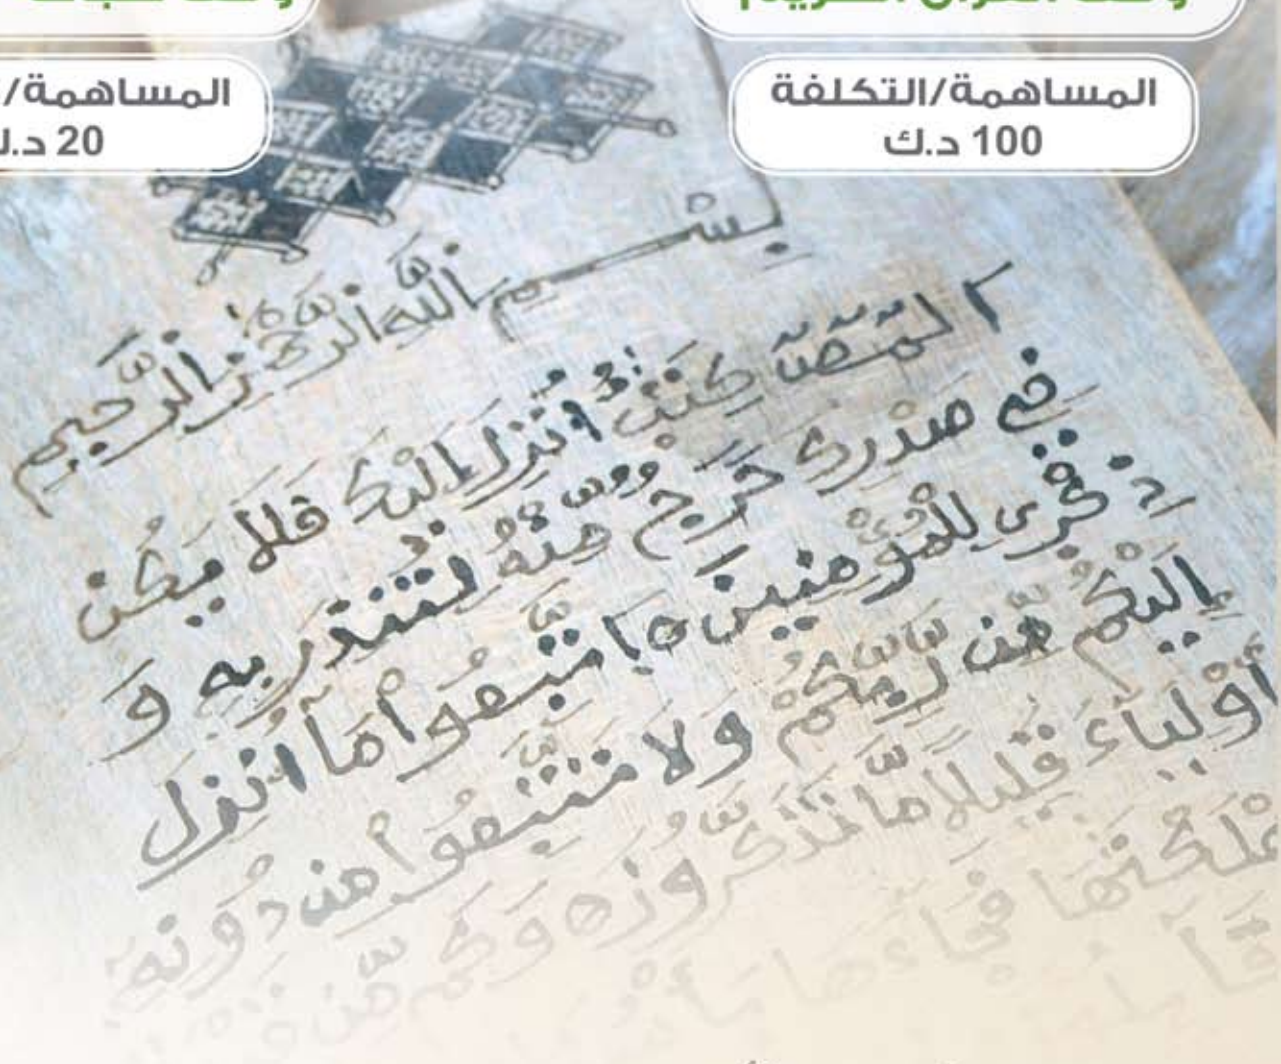 المساهمة/التكلفة
100 د.ك
المساهمة/
20 د.ك
بِسْمِ اللَّهِ الرَّحْمَٰنِ الرَّحِيمِ
الٓمٓصٓ كِتَٰبٌ أُنْزِلَ إِلَيْكَ فَلَا يَكُن
فِي صَدْرِكَ حَرَجٌ مِّنْهُ لِتُنْذِرَ بِهِ وَ
ذِكْرَى لِلْمُؤْمِنِينَ ٥ اتَّبِعُوا مَآ أُنْزِلَ
إِلَيْكُمْ مِّن رَّبِّكُمْ وَلَا تَتَّبِعُوا مِن دُونِهِ
أَوْلِيَآءَ قَلِيلًا مَّا تَذَكَّرُونَ ٥ وَكَم مِّن
فَجَآءَهَا